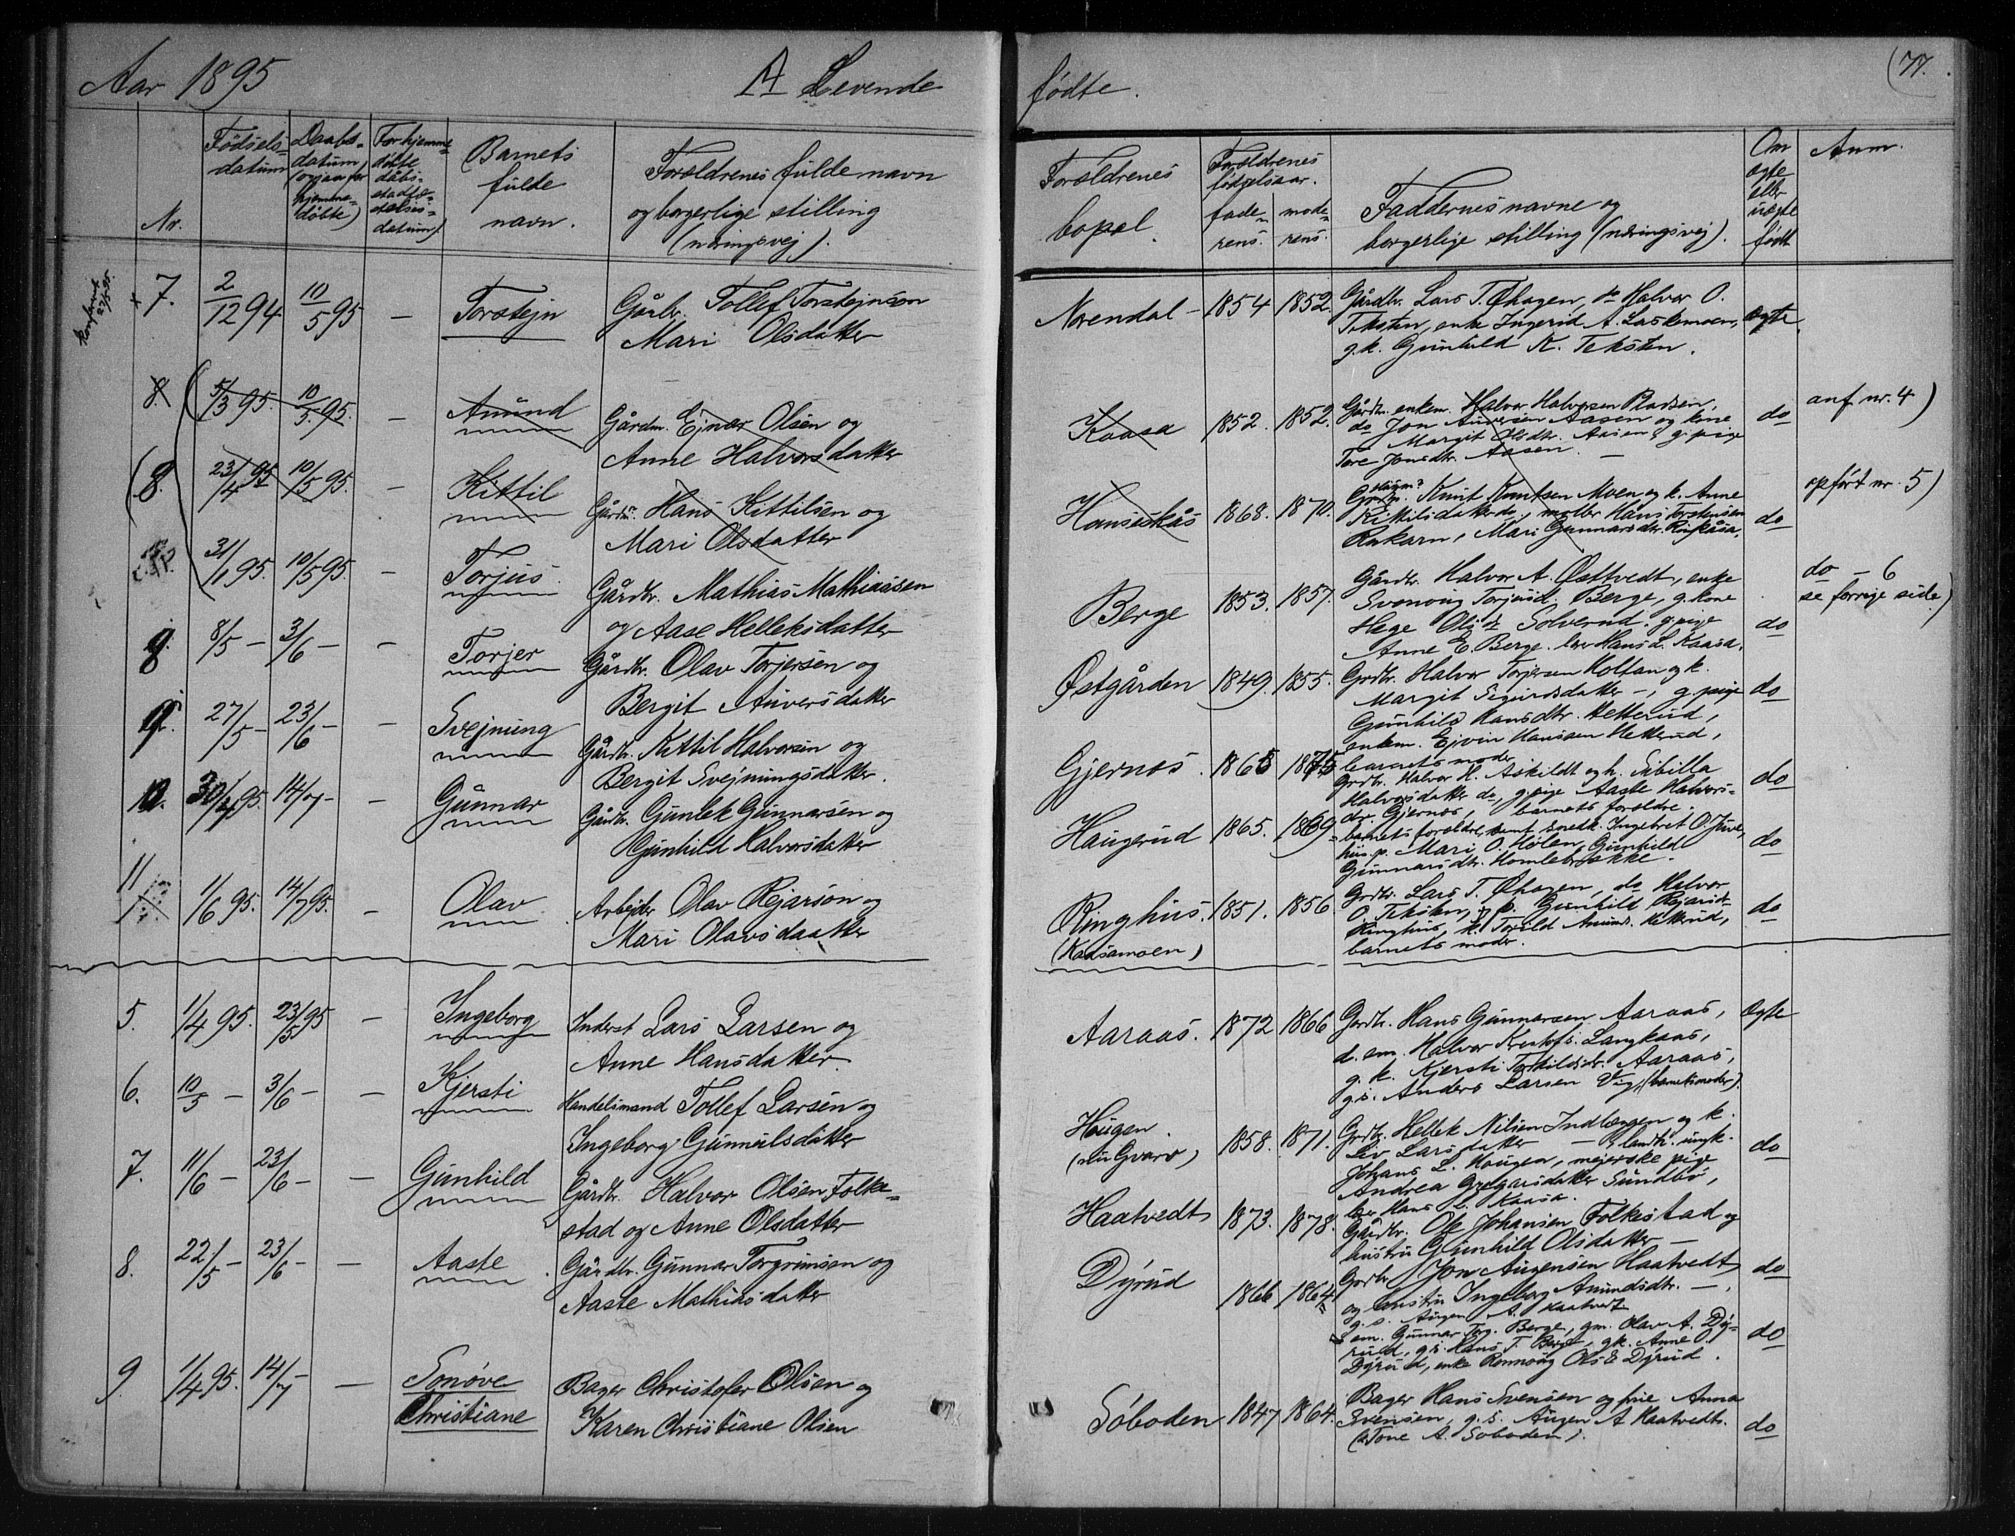 Aar 1895
A Levende
fødte.
(77.
Nr.
Fødsels-
datum
Daabs-
datum
(ogsaa for
hjemme-
døbte)
For hjemme
døbte
dåbs-
stadfæ-
stelses-
datum)
Barnets
fulde
navn.
Forældrenes fulde navn
og borgerlige stilling
(næringsvej).
Forældrenes
bopæl.
Forældrenes
fødselsaar.
fade-
rens.
mode-
rens.
Faddernes navne og
borgerlige stilling (næringsvej).
Om
ægte
eller
uægte
født
Anm.
7. 2/12 94 10/5 95 — Torstejn Gårbr. Tollef Torstejnsøn
Mari Olsdatter
Norendal — 1854 1852. Gårdbr. Lars T. Øhagen, do Halvor O.
Teksten, enke Ingerid A. Laskemoen,
g.k. Gunhild K. Teksten.
ægte.
8. (5/3 95. 10/5 95. — Amund Gårdm. Ejnar Olsen og
Anne Halvorsdatter
Kaasa 1852. 1852. Gårdm. enkem. Halvor Halvorsen Pladsen,
do Jon Auversen Aasen og kone
Margit Olsdtr. Aasen, g. pige
Tore Jonsdtr. Aasen. —
do anf nr. 4)
(8. 23/4 95 10/5 95. — Kittil Gårdbr. Hans Kittilsen og
Mari Olsdatter
Hanseskås 1868. 1870. Knut Knutsen Moen og k. Anne
Kittilsdatter do, møller Hans Torstensen
Rakarn, Mari Gunnarsdtr. Ringåsa,
do opført nr. 5)
31/1 95. 10/5 95. — Torjus Gårdbr. Mathias Mathiassen
og Aase Helleksdatter
Berge 1853. 1857. Gårdbr. Halvor A. Østtvedt, enke
Svanaug Torjusd. Berge, g. kone
Hege Olsd Solverud. g. pige
Anne E. Berge. lær Hans L. Kaasa.
do do — 6
se forrige side)
8 8/5 — 3/6 — — Torjer Gårdbr. Olav Torjersen og
Bergit Auversdatter
Østgården 1849. 1855. Grdbr. Halvor Torjersen Holtan og k.
Margit Sigurdsdatter —, g. pige
Gunhild Hansdtr. Hetterud,
enkem. Ejvin Hansen Hetterud,
barnets moder
do
9. 27/5 — 23/6 — — Svejnung Gårdbr. Kittil Halvorsen og
Bergit Svejnungsdatter.
Gjernes. 1865 1875 Grdbr. Halvor H. Askildt og h. Sibilla
Halvorsdatter do, g. pige Aaste Halvors-
dtr. Gjernes, barnets forældre.
do
10. 30/4 95. 14/7 — — Gunnar Gårdbr. Gunlek Gunnarsen og
Gunhild Halvorsdatter
Haugerud 1865. 1869 barnets forældre, samt snedk. Ingebret O. Juve,
hus p. Mari O. Hølen, Gunhild
Gunnarsdtr. Homlebække.
do
11 1/6 95. 14/7 95. — Olav Arbejder Olav Rejarsøn og
Mari Olavsdaatter
Ringhus. 1851. 1856. Grdbr. Lars T. Øhagen, do Halvor
O. Teksten, g. p. Gunhild Rejarsd.
Ringhus, k. Torild Amund. Hetterud,
barnets moder.
do
(Kaasamoen)
5. 1/4 95. 23/5 95 — Ingeborg Inderst Lars Larsen og
Anne Hansdatter
Aaraas. 1872 1866 Grdbr. Hans Gunnarsen Aaraas,
d. em. Halvor Kristofs. Langkaas,
g. k. Kjersti Torkildsdtr. Aaraas,
g. s. Anders Larsen Vig, (barnets moder).
Ægte
6. 10/5 — 3/6 — — Kjersti Handelsmand Tollef Larsen og
Ingeborg Gunnulsdatter
Haugen.
(nu Gvarv) 1858. 1871. Grdbr. Hellek Nilsen Indlægen og k.
Liv Larsdatter — landh. ungk.
Johans L. Haugen, mejerske pige
Andrea Gregarsdatter Sundbø,
lær Hans L. Kaasa.
do
7. 11/6 — 23/6 — — Gunhild Gårdbr. Halvor Olsen Folke-
stad og Anne Olsdatter
Haatvedt 1873. 1878. Gårdbr. Ole Johansen Folkestad og
hustru Gunhild Olsdatter —
Grdbr. Jon Augensen Haatvedt
og hustru Ingeborg Amundsdtr. —,
g. s. Augen A. Haatvedt
do
8. 22/5 — 23/6 — — Aaste Gårdbr. Gunnar Torgrimsen og
Aaste Mathiasdatter
Dyrud 1866 1864. em. Gunnar Torg. Berge, gm. Olav A. Dy-
rud, gs. Hans T. Berge, gk. Anne O.
Dyrud, enke Rønnaug Olsd Dyrud.
do
9 1/4 95. 14/7 — — Sonøve
Christiane Bager Christofer Olsen og
Karen Christiane Olsen
Søboden 1847 1864. Bager Hans Svensen og frue Anna
Svensen, g. s. Augen A. Haatvedt.
(Tone A. Søboden).
do